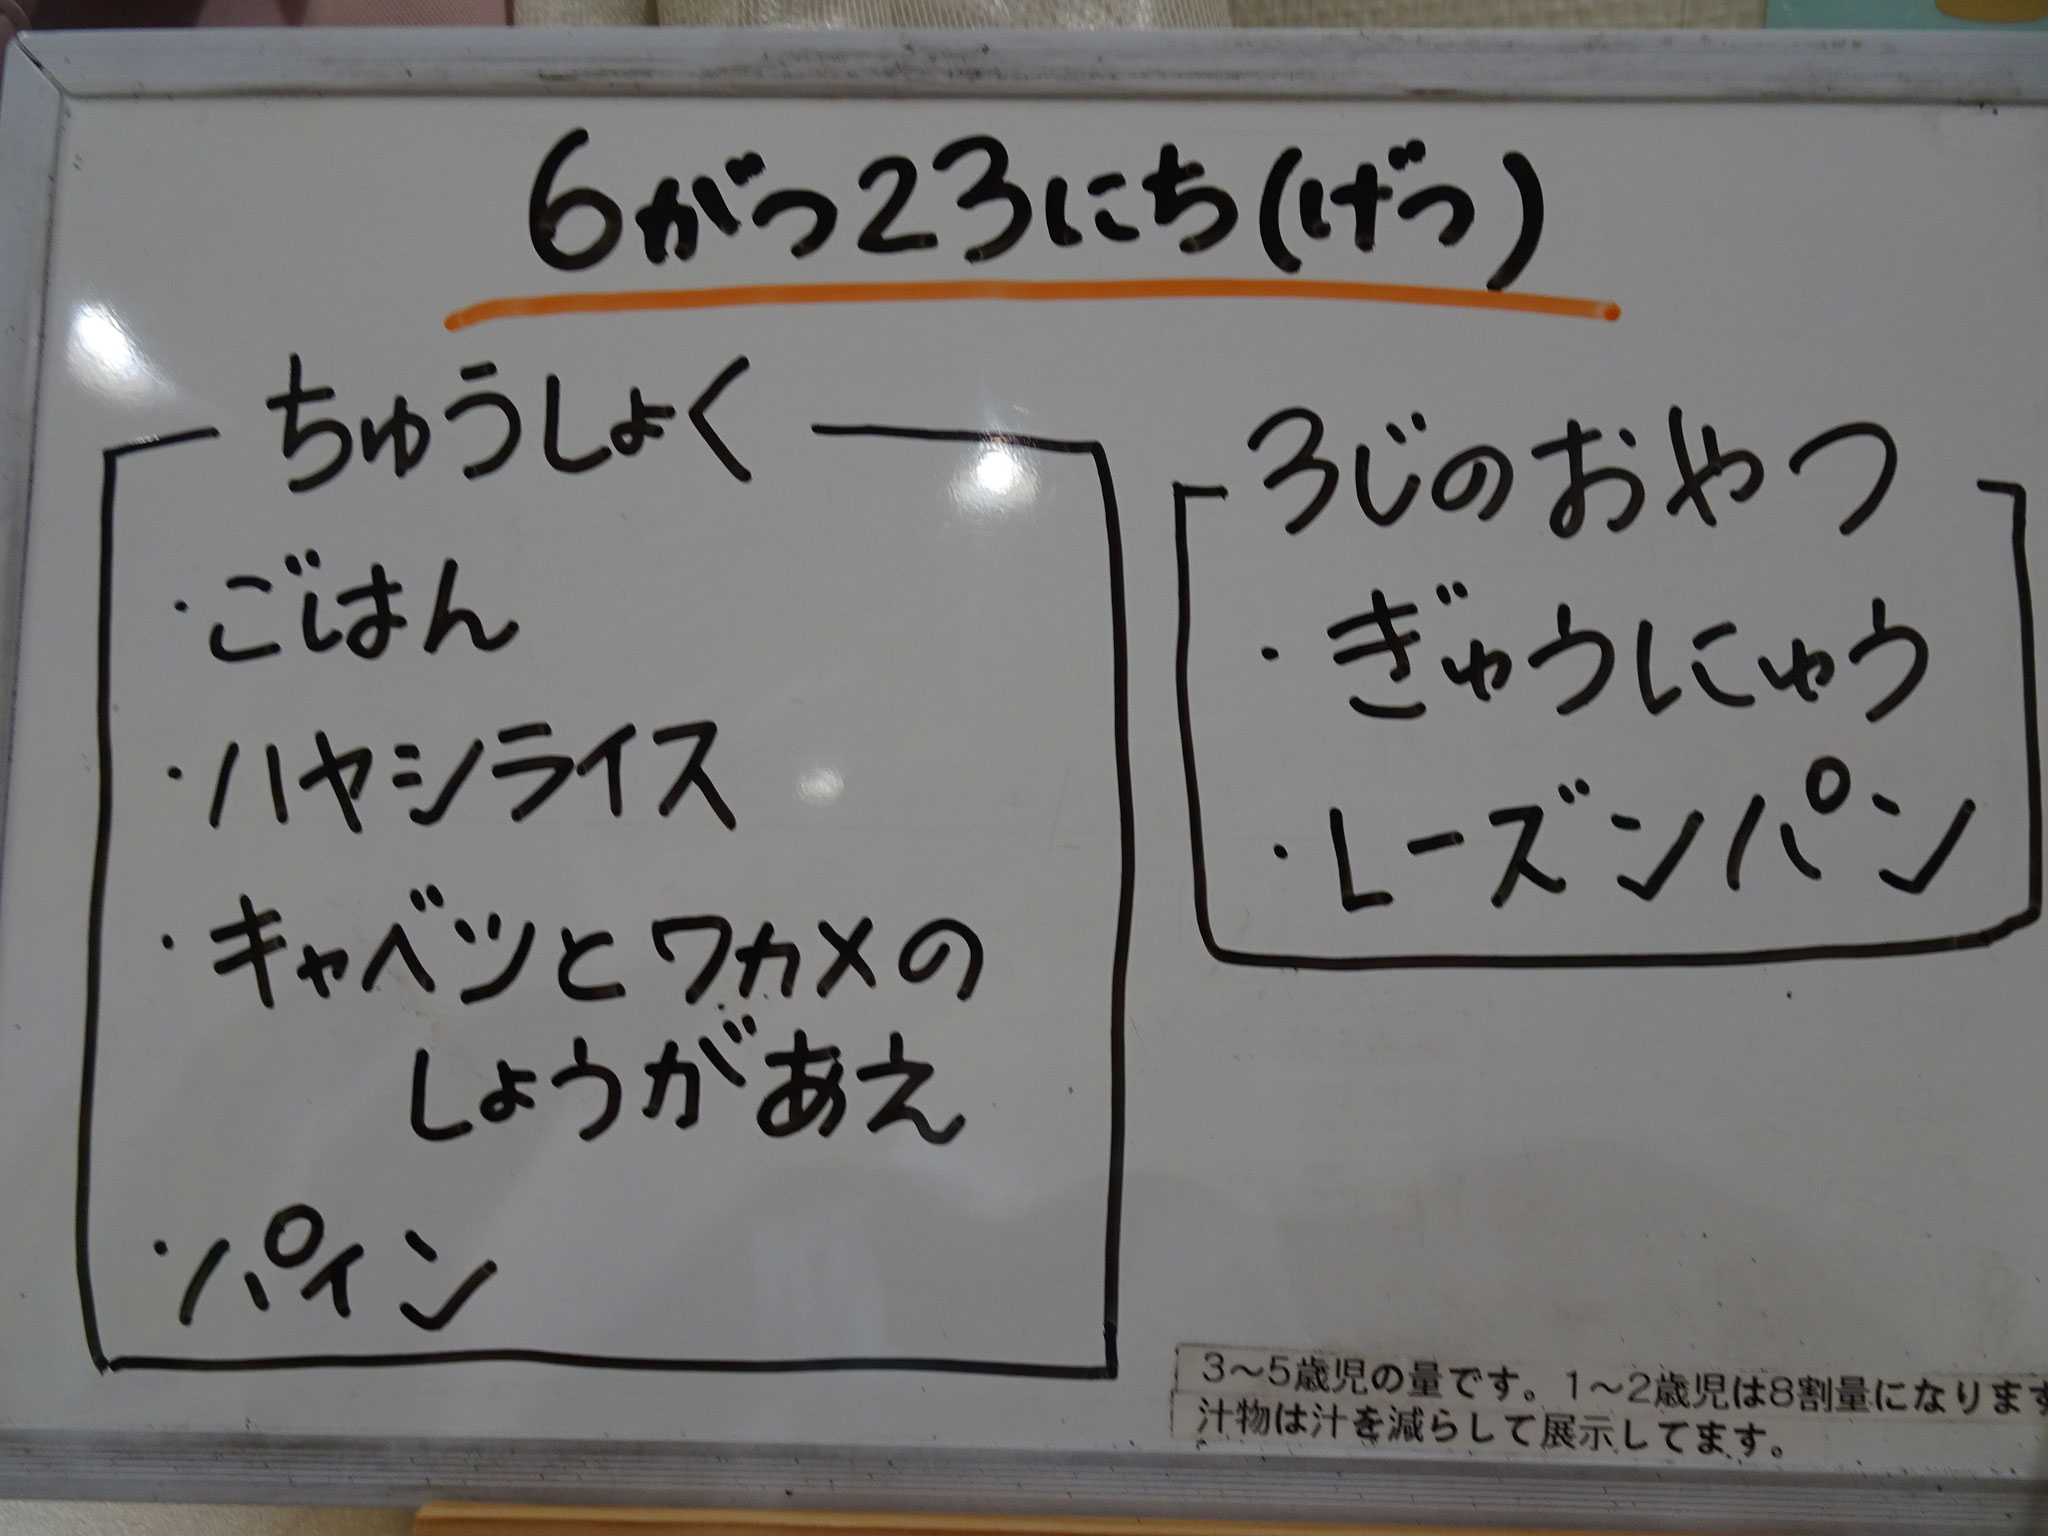 6がつ23にち(げつ)
ちゅうしょく
・ごはん
・ハヤシライス
・キャベツとワカメの
しょうがあえ
・パイン
3じのおやつ
・ぎゅうにゅう
・レーズンパン
3〜5歳児の量です。1〜2歳児は8割量になります
汁物は汁を減らして展示してます。